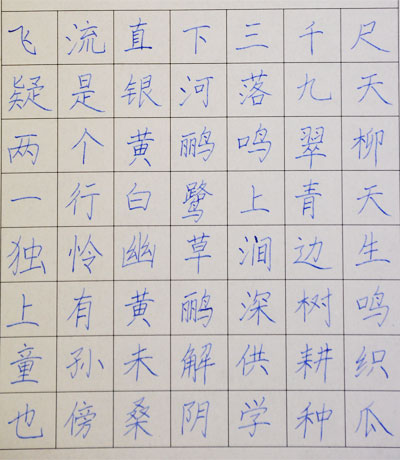 飞流直下三千尺
疑是银河落九天
两个黄鹂鸣翠柳
一行白鹭上青天
独怜幽草涧边生
上有黄鹂深树鸣
童孙未解供耕织
也傍桑阴学种瓜